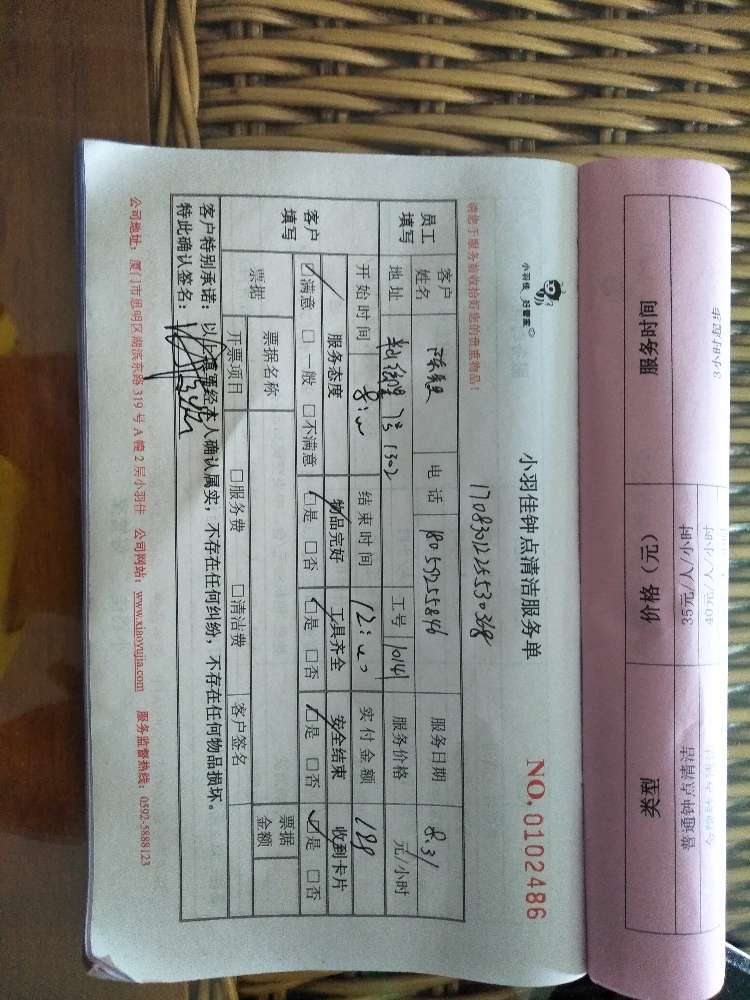 小羽佳 好管家
小羽佳钟点清洁服务单
NO. 0102486
请您于服务前收拾好您的贵重物品！
员工填写
客户姓名 电话 18059255846 服务日期 8.31
地址 7号1302 工号 10141 服务价格 元/小时
客户填写
开始时间 8:00 结束时间 12:00 实付金额 128
服务态度 物品完好 工具齐全 安全结束 收到卡片
☑满意 □一般 □不满意 ☑是 □否 ☑是 □否 ☑是 □否 ☑是 □否
票据 票据名称 票据金额
开票项目 □服务费 □清洁费 客户签名
客户特别承诺：以上填项经本人确认属实，不存在任何纠纷，不存在任何物品损坏。
特此确认签名：
公司地址：厦门市思明区湖滨东路 319 号 A 幢 2 层小羽佳 公司网站：www.xiaoyujia.com 服务监督热线：0592-5888123
类型 价格（元） 服务时间
普通钟点清洁 35元/人/小时
40元/人/小时 3小时起步